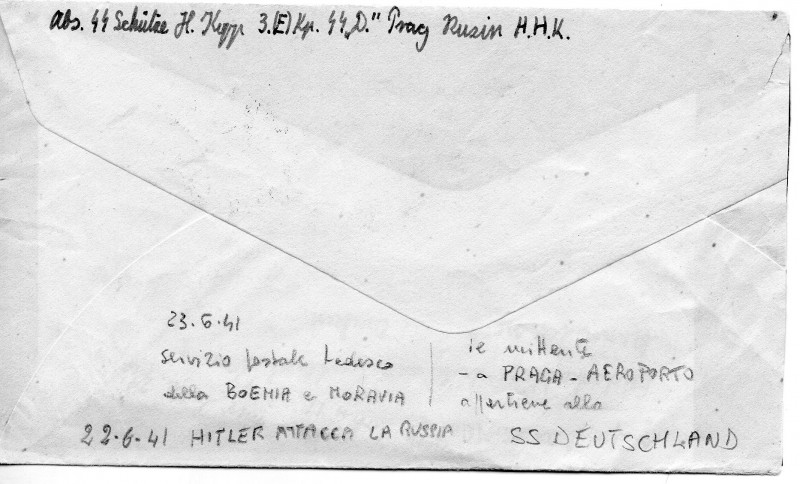 Abs. SS Schütze H. 3.(E) Kp. SS „D." Prag Rusin H.H.K.
23.6.41
servizio postale tedesco
della BOEMIA e MORAVIA
22.6.41 HITLER ATTACCA LA RUSSIA
il mittente
- a PRAGA - AEROPORTO
appartiene alla
SS DEUTSCHLAND